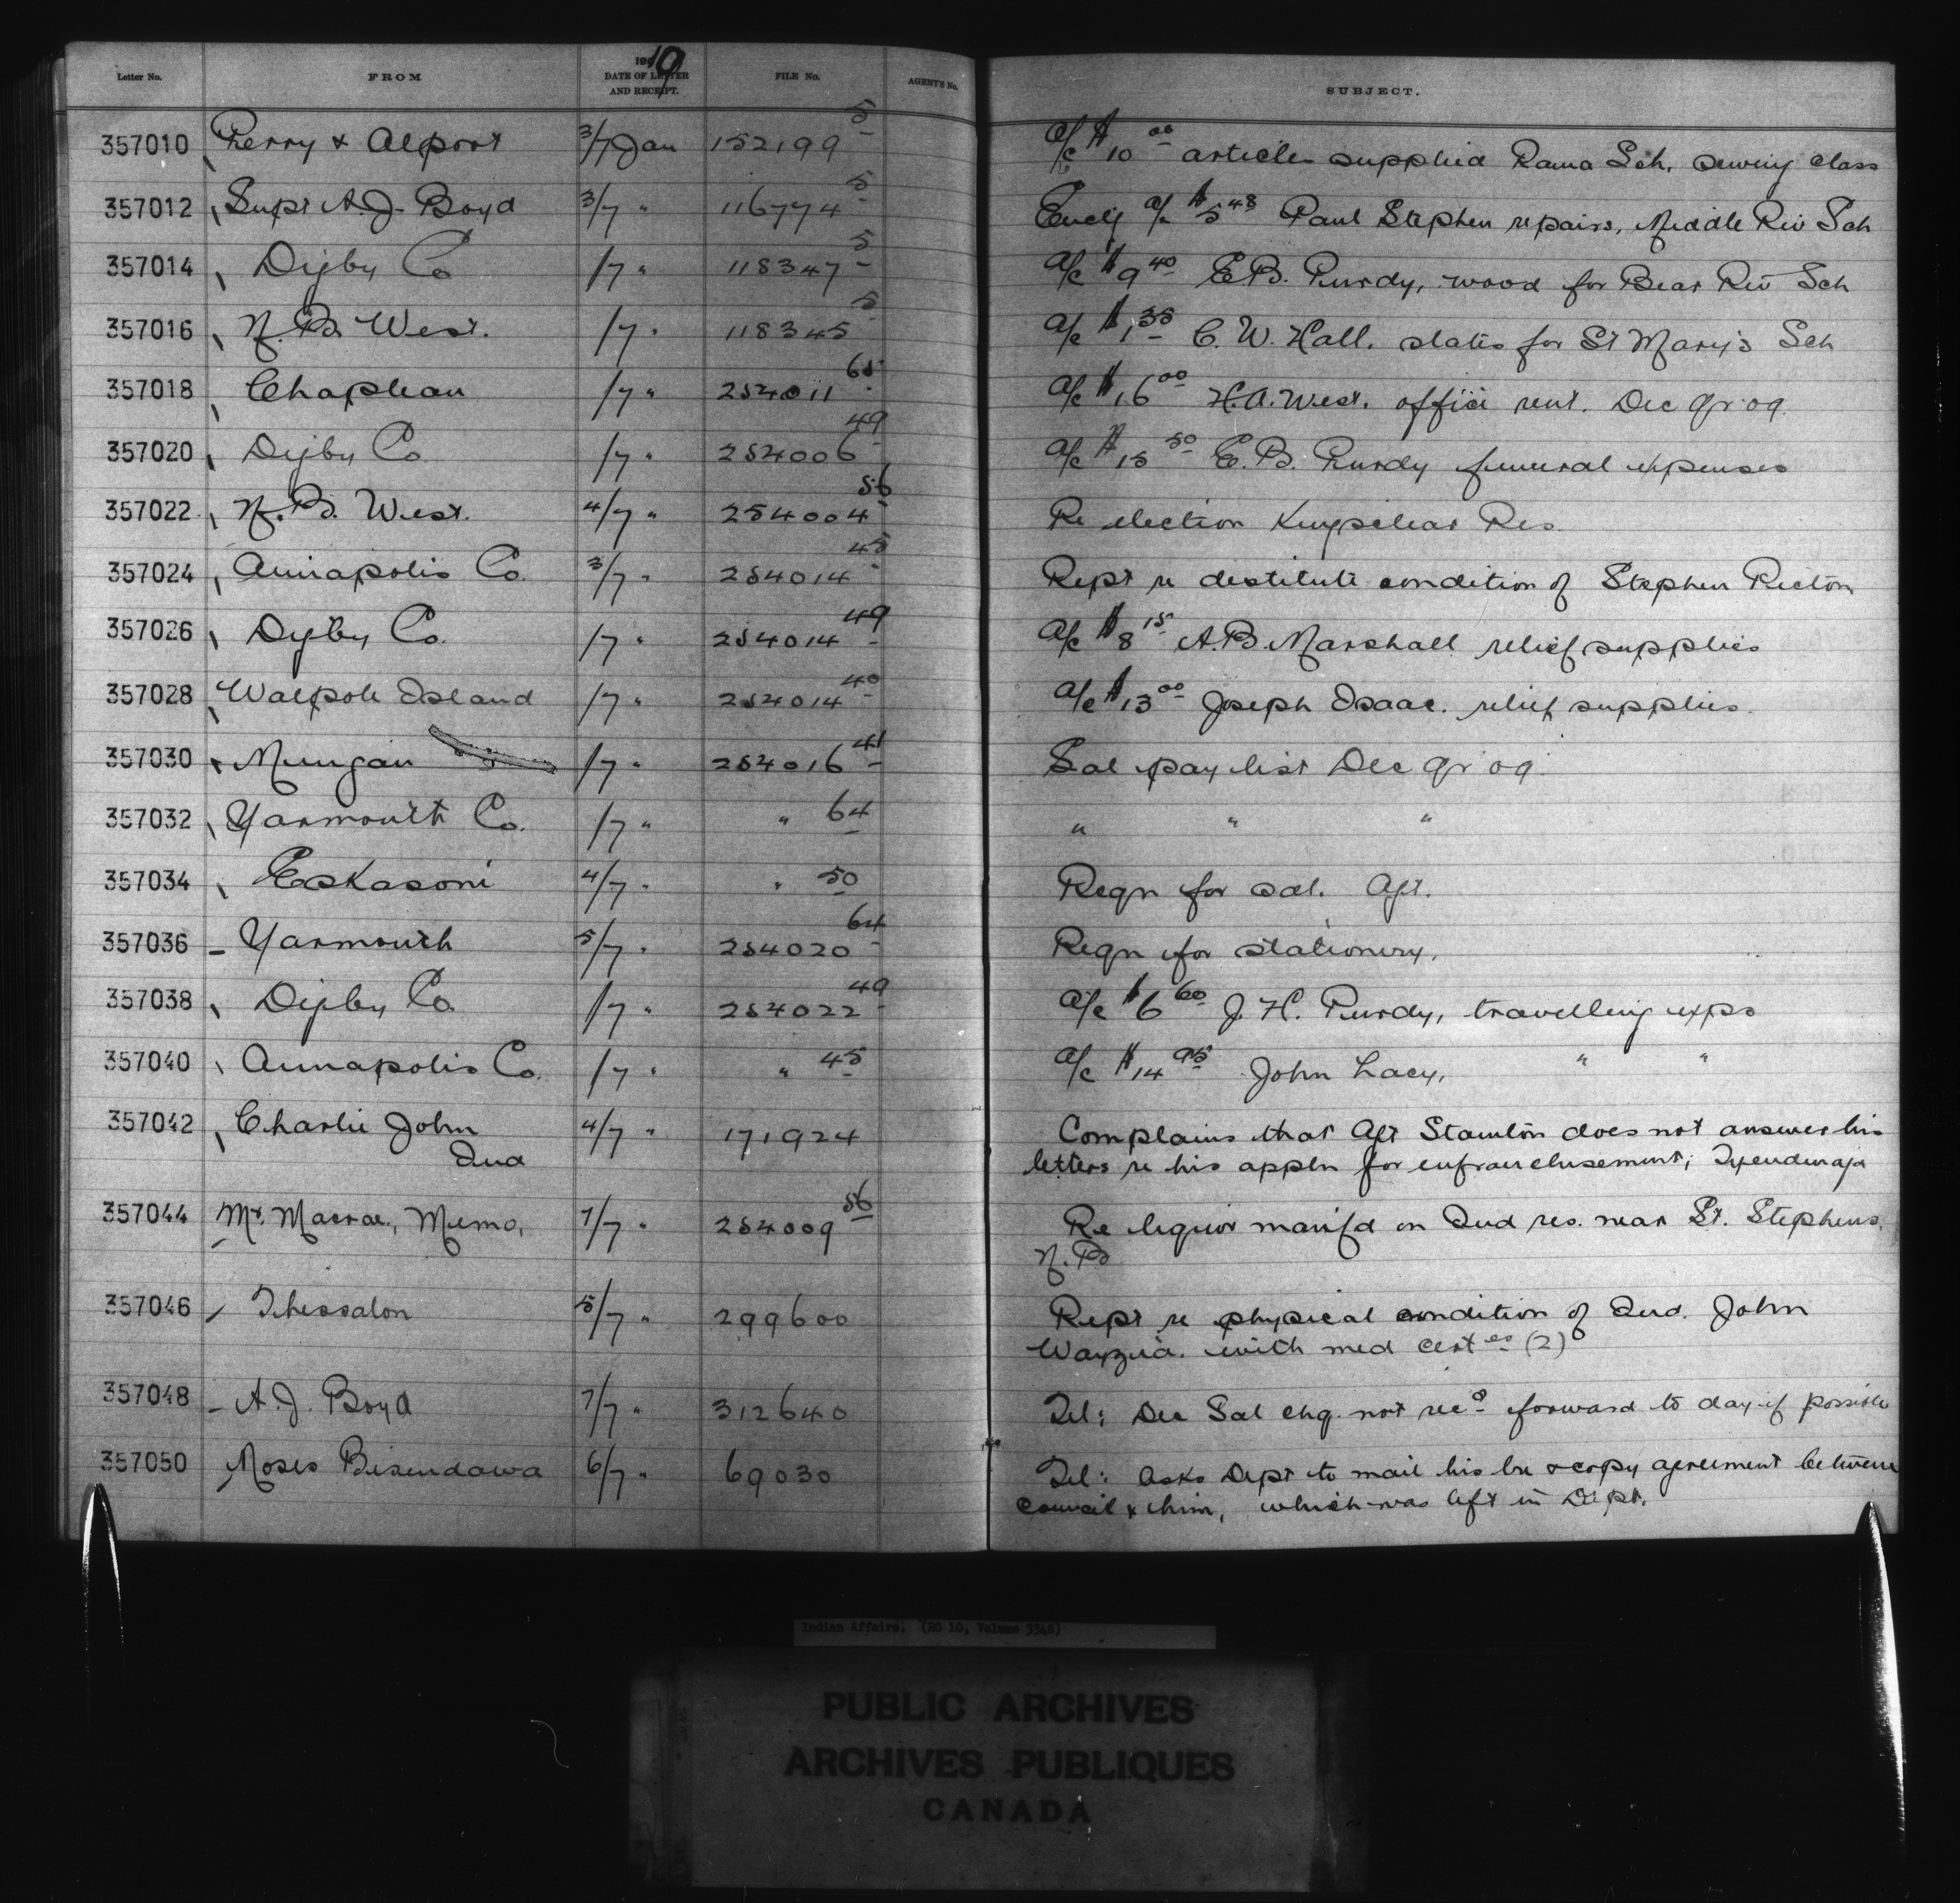 Letter No. FROM 1910 DATE OF LETTER AND RECEIPT. FILE No. AGENT'S No. SUBJECT.
357010 Perry & Alport 3/7 Jan 152199-5 a/c $10.00 articles supplied Rama Sch. sewing class
357012 Supt A.J. Boyd 3/7 " 116774-5 Enclg a/c $5.48 Paul Stephen repairs, Middle Riv Sch
357014 Digby Co /7 " 118347-5 a/c $9.40 E.B. Purdy, wood for Bear Riv Sch
357016 N.B. West. /7 " 118345-5 a/c $1.35 C.W. Hall. slates for St Mary's Sch
357018 Chapleau /7 " 254011-65 a/c $16.00 H.A. West. office rent. Dec qr 09.
357020 Digby Co /7 " 254006-49 a/c $15.50 E.B. Purdy funeral expenses
357022 N.B. West. 4/7 " 254004-56 Re election Kingsclear Res
357024 Annapolis Co. 3/7 " 254014-45 Rept re destitute condition of Stephen Ricton
357026 Digby Co. /7 " 254014-49 a/c $8.15 A.B. Marshall relief supplies
357028 Walpole Island /7 " 254014-40 a/c $13.00 Joseph Isaac. relief supplies.
357030 /7 " 254016-41 Sal pay list Dec qr 09.
357032 Yarmouth Co. /7 " " 64 " " "
357034 Eskasoni 4/7 " " 50 Reqn for sal. Agt.
357036 Yarmouth 5/7 " 254020-64 Reqn for stationery.
357038 Digby Co. /7 " 254022-49 a/c $6.60 J.H. Purdy, travelling exps
357040 Annapolis Co. /7 " " 45 a/c $14.95 John Lacy, " "
357042 Charlie John 4/7 " 171924 Complains that Agt Stainton does not answer his
Ind letters re his appln for enfranchisement; Tyendinaga
357044 Mr. Macrae, Memo, 7/7 " 254009-56 Re liquor manfd on Ind res. near St. Stephens,
N.B
357046 Thessalon 5/7 " 299600 Rept re physical condition of Ind. John
with med certes (2)
357048 A.J. Boyd 7/7 " 312640 Tel: Dec Sal chq. not recd forward to day if possible
357050 Moses Bisendawa 6/7 " 69030 Tel: asks Dept to mail his & copy agreement between
council & him, which was left in Dept.
Indian Affairs. (RG 10, Volume 3348)
PUBLIC ARCHIVES
ARCHIVES PUBLIQUES
CANADA